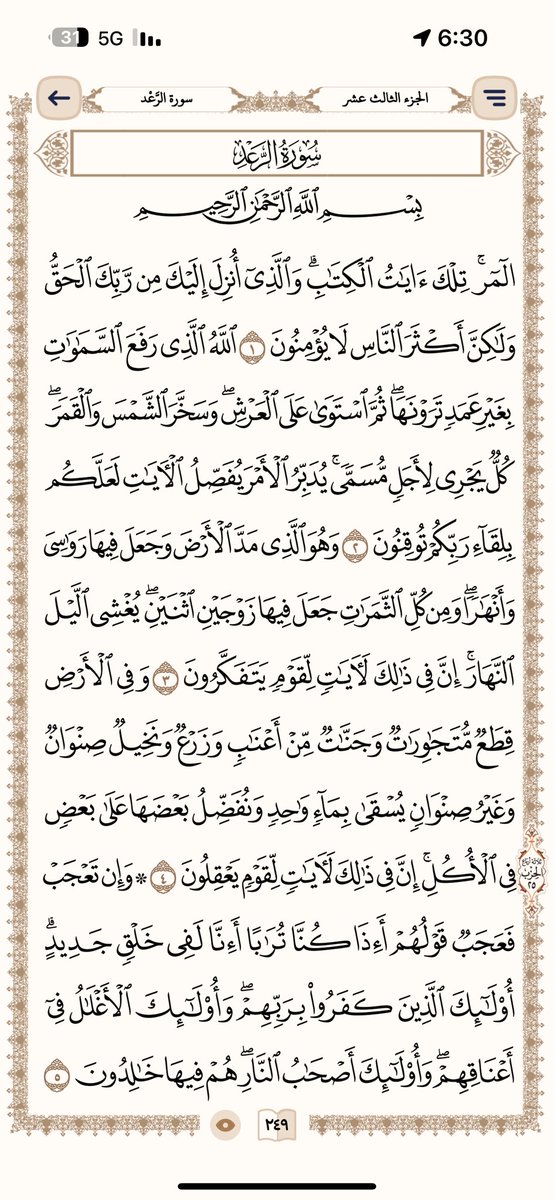 31 5G 6:30
الجزء الثالث عشر
سورة الرَّعْد
سُورَةُ الرَّعْدِ
بِسْمِ ٱللَّهِ ٱلرَّحْمَٰنِ ٱلرَّحِيمِ
الٓمٓرۚ تِلْكَ ءَايَٰتُ ٱلْكِتَٰبِۗ وَٱلَّذِىٓ أُنزِلَ إِلَيْكَ مِن رَّبِّكَ ٱلْحَقُّ
وَلَٰكِنَّ أَكْثَرَ ٱلنَّاسِ لَا يُؤْمِنُونَ ١ ٱللَّهُ ٱلَّذِى رَفَعَ ٱلسَّمَٰوَٰتِ
بِغَيْرِ عَمَدٍ تَرَوْنَهَاۖ ثُمَّ ٱسْتَوَىٰ عَلَى ٱلْعَرْشِۖ وَسَخَّرَ ٱلشَّمْسَ وَٱلْقَمَرَۖ
كُلٌّ يَجْرِى لِأَجَلٍ مُّسَمًّىۚ يُدَبِّرُ ٱلْأَمْرَ يُفَصِّلُ ٱلْأٓيَٰتِ لَعَلَّكُم
بِلِقَآءِ رَبِّكُمْ تُوقِنُونَ ٢ وَهُوَ ٱلَّذِى مَدَّ ٱلْأَرْضَ وَجَعَلَ فِيهَا رَوَٰسِىَ
وَأَنْهَٰرًاۖ وَمِن كُلِّ ٱلثَّمَرَٰتِ جَعَلَ فِيهَا زَوْجَيْنِ ٱثْنَيْنِۖ يُغْشِى ٱلَّيْلَ
ٱلنَّهَارَۚ إِنَّ فِى ذَٰلِكَ لَأٓيَٰتٍ لِّقَوْمٍ يَتَفَكَّرُونَ ٣ وَفِى ٱلْأَرْضِ
قِطَعٌ مُّتَجَٰوِرَٰتٌ وَجَنَّٰتٌ مِّنْ أَعْنَٰبٍ وَزَرْعٌ وَنَخِيلٌ صِنْوَانٌ
وَغَيْرُ صِنْوَانٍ يُسْقَىٰ بِمَآءٍ وَٰحِدٍ وَنُفَضِّلُ بَعْضَهَا عَلَىٰ بَعْضٍ
فِى ٱلْأُكُلِۚ إِنَّ فِى ذَٰلِكَ لَأٓيَٰتٍ لِّقَوْمٍ يَعْقِلُونَ ٤ ۞وَإِن تَعْجَبْ
ثلاثة أرباع
الحزب
٢٥
فَعَجَبٌ قَوْلُهُمْ أَءِذَا كُنَّا تُرَٰبًا أَءِنَّا لَفِى خَلْقٍ جَدِيدٍۗ
أُو۟لَٰٓئِكَ ٱلَّذِينَ كَفَرُوا۟ بِرَبِّهِمْۖ وَأُو۟لَٰٓئِكَ ٱلْأَغْلَٰلُ فِىٓ
أَعْنَاقِهِمْۖ وَأُو۟لَٰٓئِكَ أَصْحَٰبُ ٱلنَّارِۖ هُمْ فِيهَا خَٰلِدُونَ ٥
٢٤٩